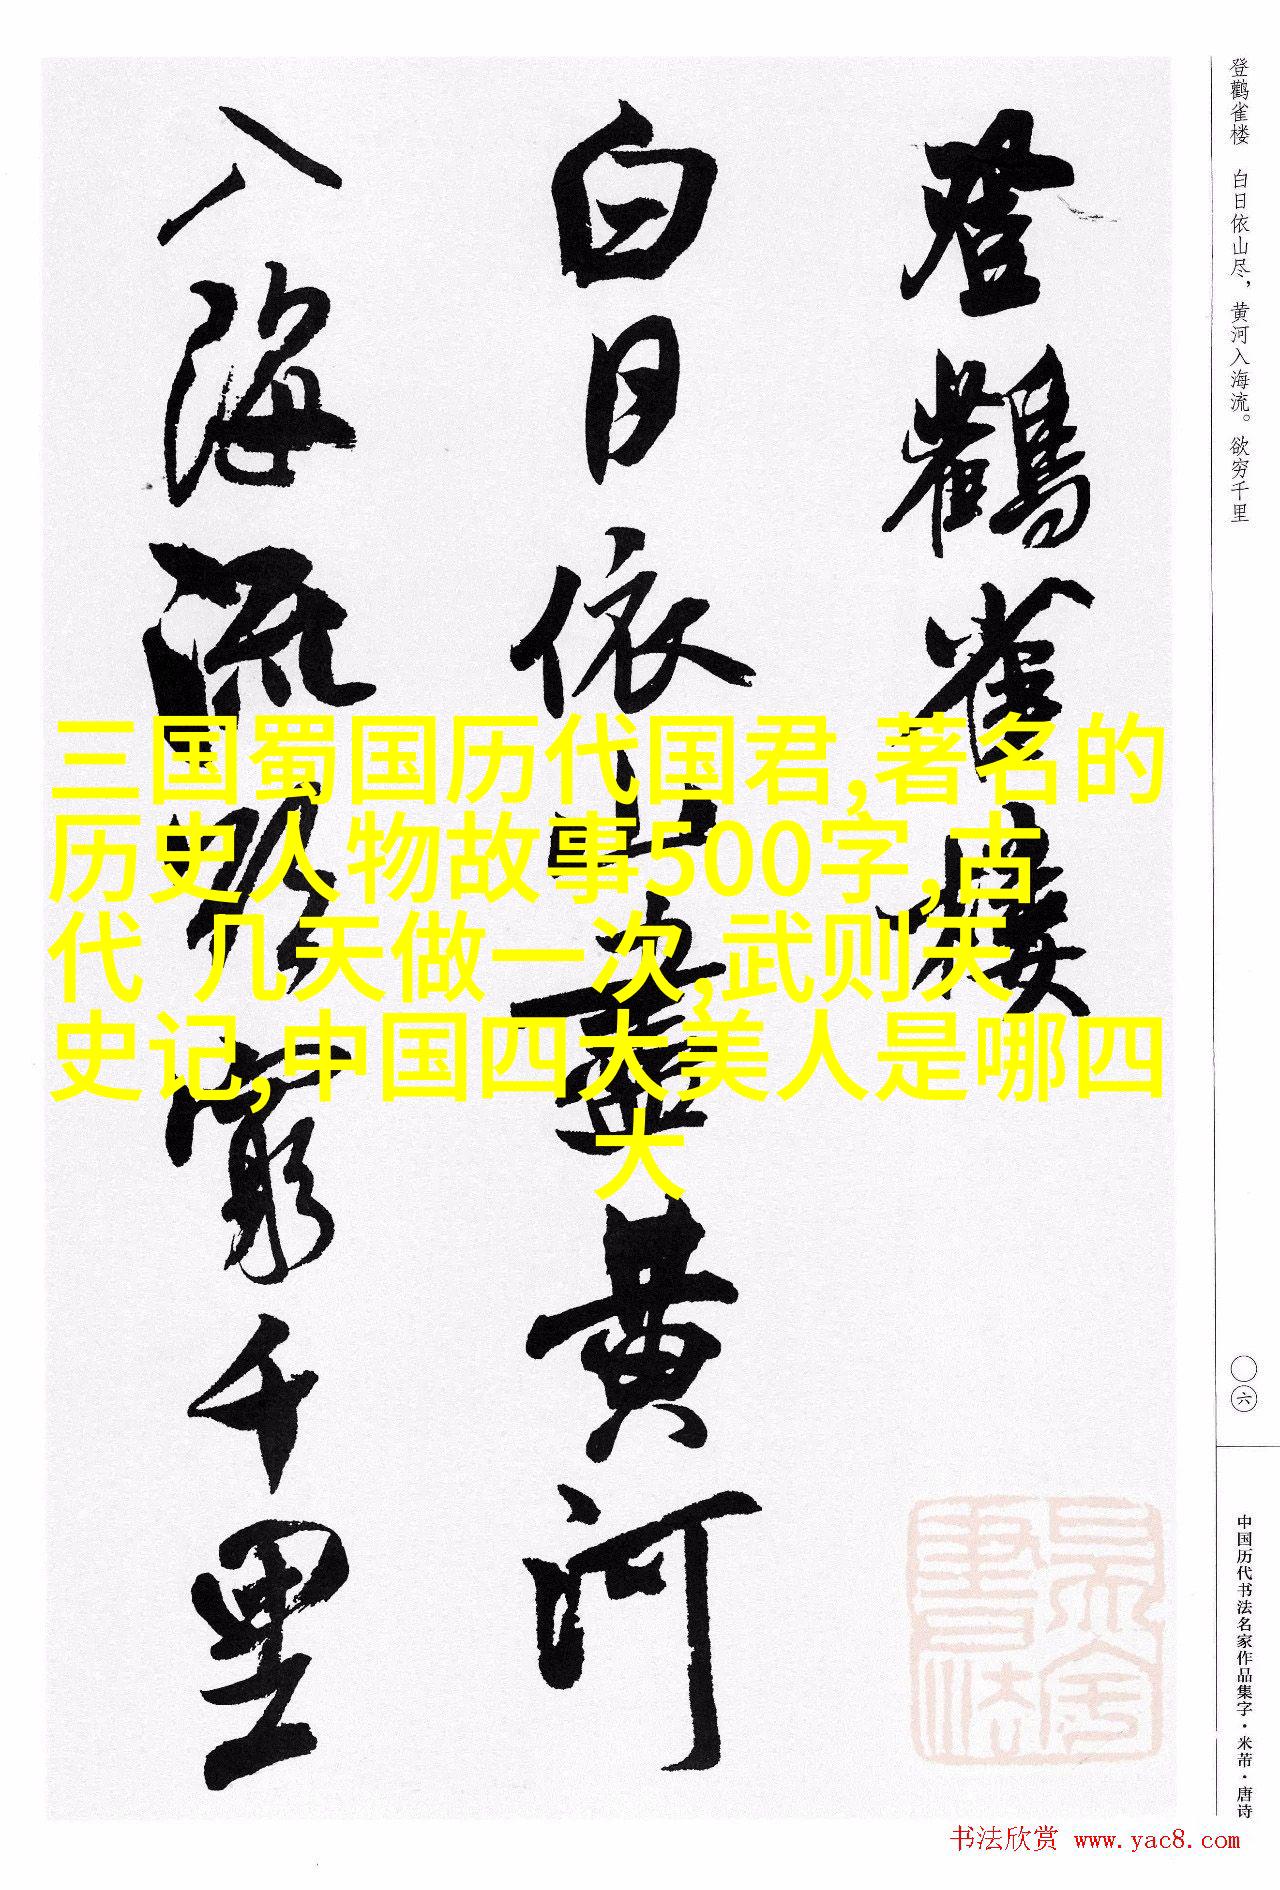 登鹳雀楼 白日依山尽，黄河入海流。欲穷千里
登鸛雀樓
白日依山盡黄河
入海流欲窮千里
三国蜀国历代国君,著名的
历史人物故事500字,古
代 几天做一次,武则天
史记,中国四大美人是哪四
大
〇六
中国历代书法名家作品集字·米芾·唐诗
书法欣赏 www.yac8.com